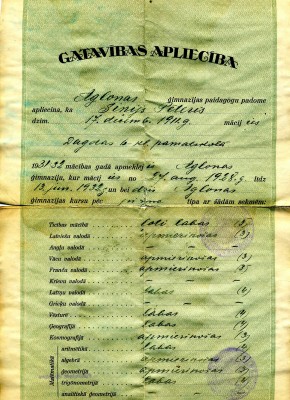 GATAVĪBAS APLIECĪBA
Aglonas ģimnazijas paidagogu padome
apliecina, ka Pēteris
dzim. 17. decembr. 1911.g. mācij ies
Dagdas 6 kl. pamatskolā
1931/32 mācības gadā apmeklej Aglonas
ģimnaziju, kur mācij ies no 24. aug. 1928. g. līdz
13. jun. 1932. un bei dzis Aglonas
ģimnazijas kursu pēc tipa ar šādām sekmēm:
Ticības mācībā ļoti labas (5)
Latviešu valodā apmierinošas (3)
Angļu valodā – –
Vācu valodā apmierinošas (3)
Franču valodā apmierinošas (3)
Krievu valodā – –
Latiņu valodā – –
Grieķu valodā – –
Vēsturē labas (4)
Ģeografijā labas (4)
Kosmografijā apmierinošas (3)
Matēmatikā
aritmētikā labas (4)
algebrā apmierinošas (3)
ģeometrijā apmierinošas (3)
trigōnometrijā labas (4)
analitiskā ģeometrijā – –